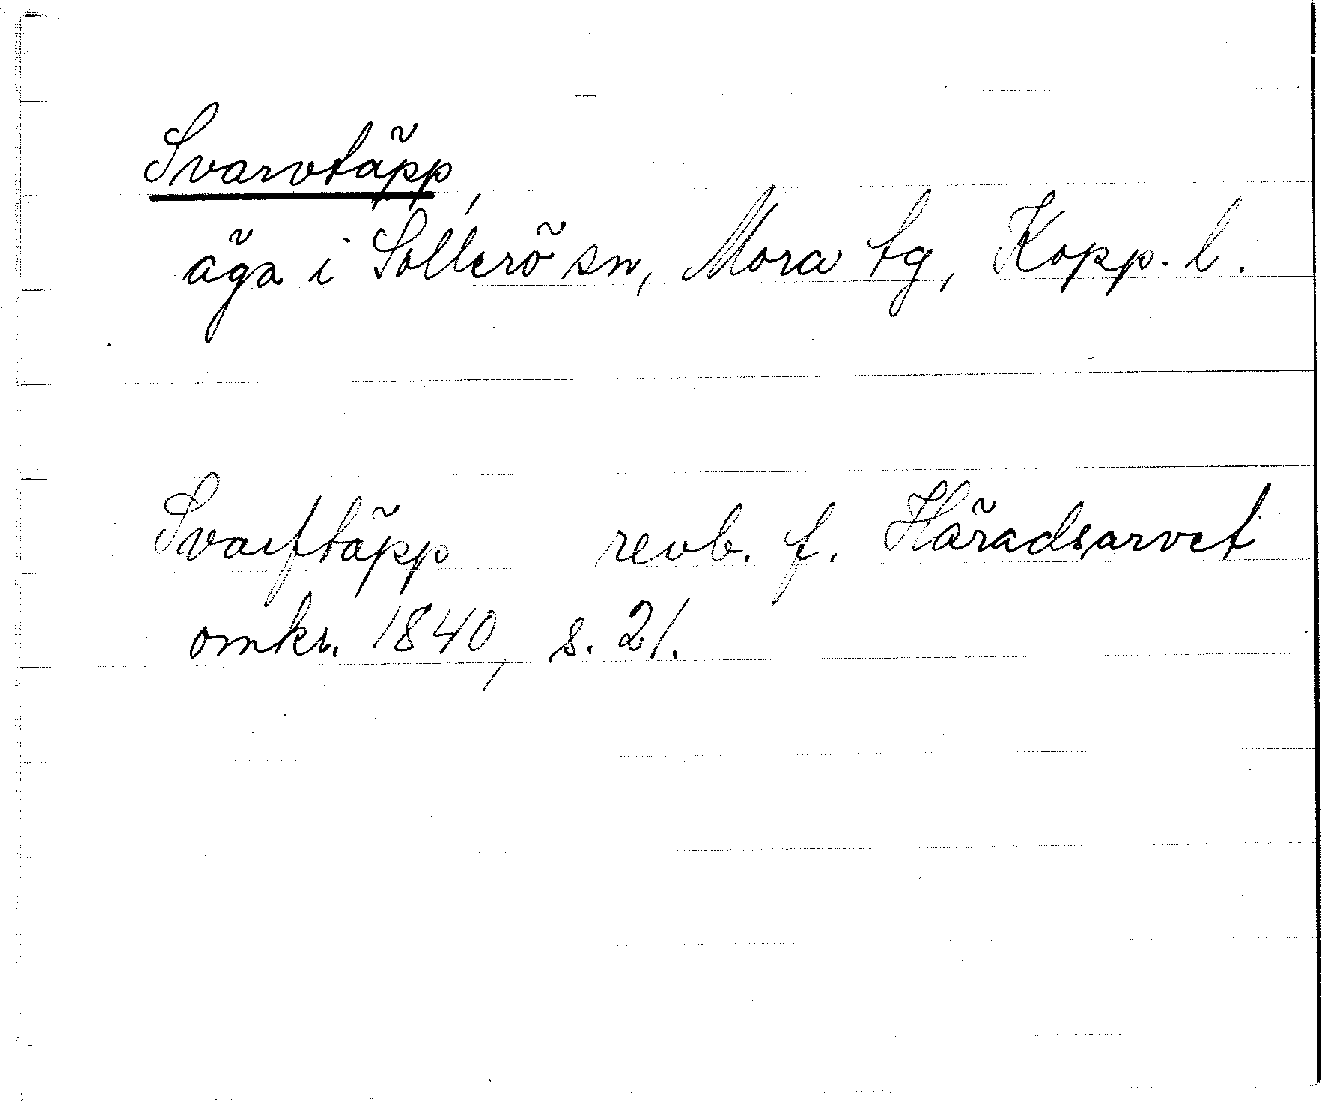 Svarvtäpp,
äga i Sollerö sn, Mora tg, Kopp. l.
Svarftäpp revb. f. Häradsarvet
omkr. 1840, s. 21.